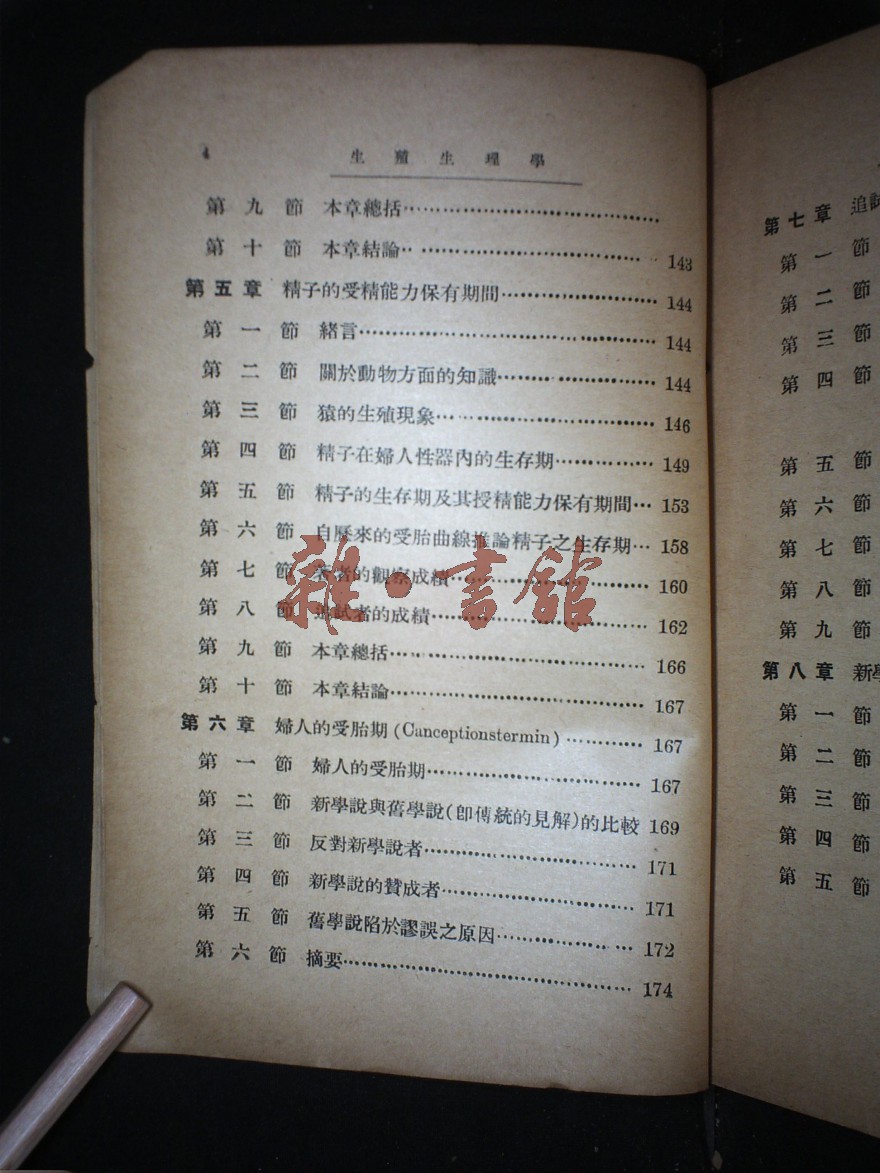 4 生殖生理學
第九節 本章總括
第十節 本章結論 143
第五章 精子的受精能力保有期間 144
第一節 緒言 144
第二節 關於動物方面的知識 144
第三節 猿的生殖現象 146
第四節 精子在婦人性器內的生存期 149
第五節 精子的生存期及其授精能力保有期間 153
第六節 自歷來的受胎曲線推論精子之生存期 158
第七節 者的觀察成績 160
第八節 追試者的成績 162
第九節 本章總括 166
第十節 本章結論 167
第六章 婦人的受胎期 (Canceptionstermin) 167
第一節 婦人的受胎期 167
第二節 新學說與舊學說(卽傳統的見解)的比較 169
第三節 反對新學說者 171
第四節 新學說的贊成者 171
第五節 舊學說陷於謬誤之原因 172
第六節 摘要 174
雜·書館
第七章 追試
第一節
第二節
第三節
第四節
第五節
第六節
第七節
第八節
第九節
第八章 新學
第一節
第二節
第三節
第四節
第五節